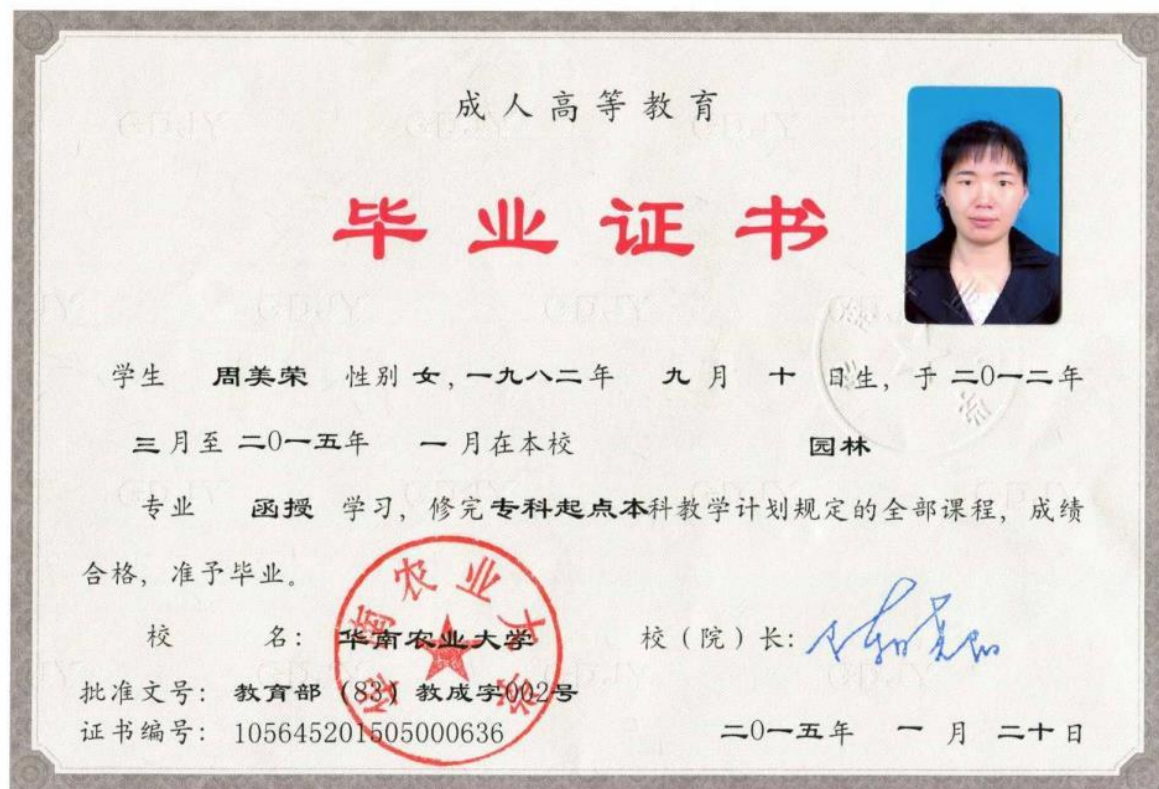 成人高等教育
毕业证书
学生 周美荣 性别 女，一九八二年 九 月 十 日生，于 二0一二年
三月至 二0一五年 一 月在本校 园林
专业 函授 学习，修完专科起点本科教学计划规定的全部课程，成绩
合格，准予毕业。
校 名：华南农业大学
校（院）长：
批准文号：教育部（83）教成字002号
证书编号：105645201505000636
二0一五年 一 月 二十日
华南农业大学
GDJY